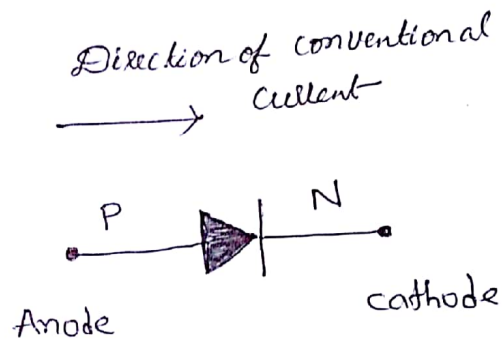 Direction of conventional
Current
P
N
Anode
Cathode